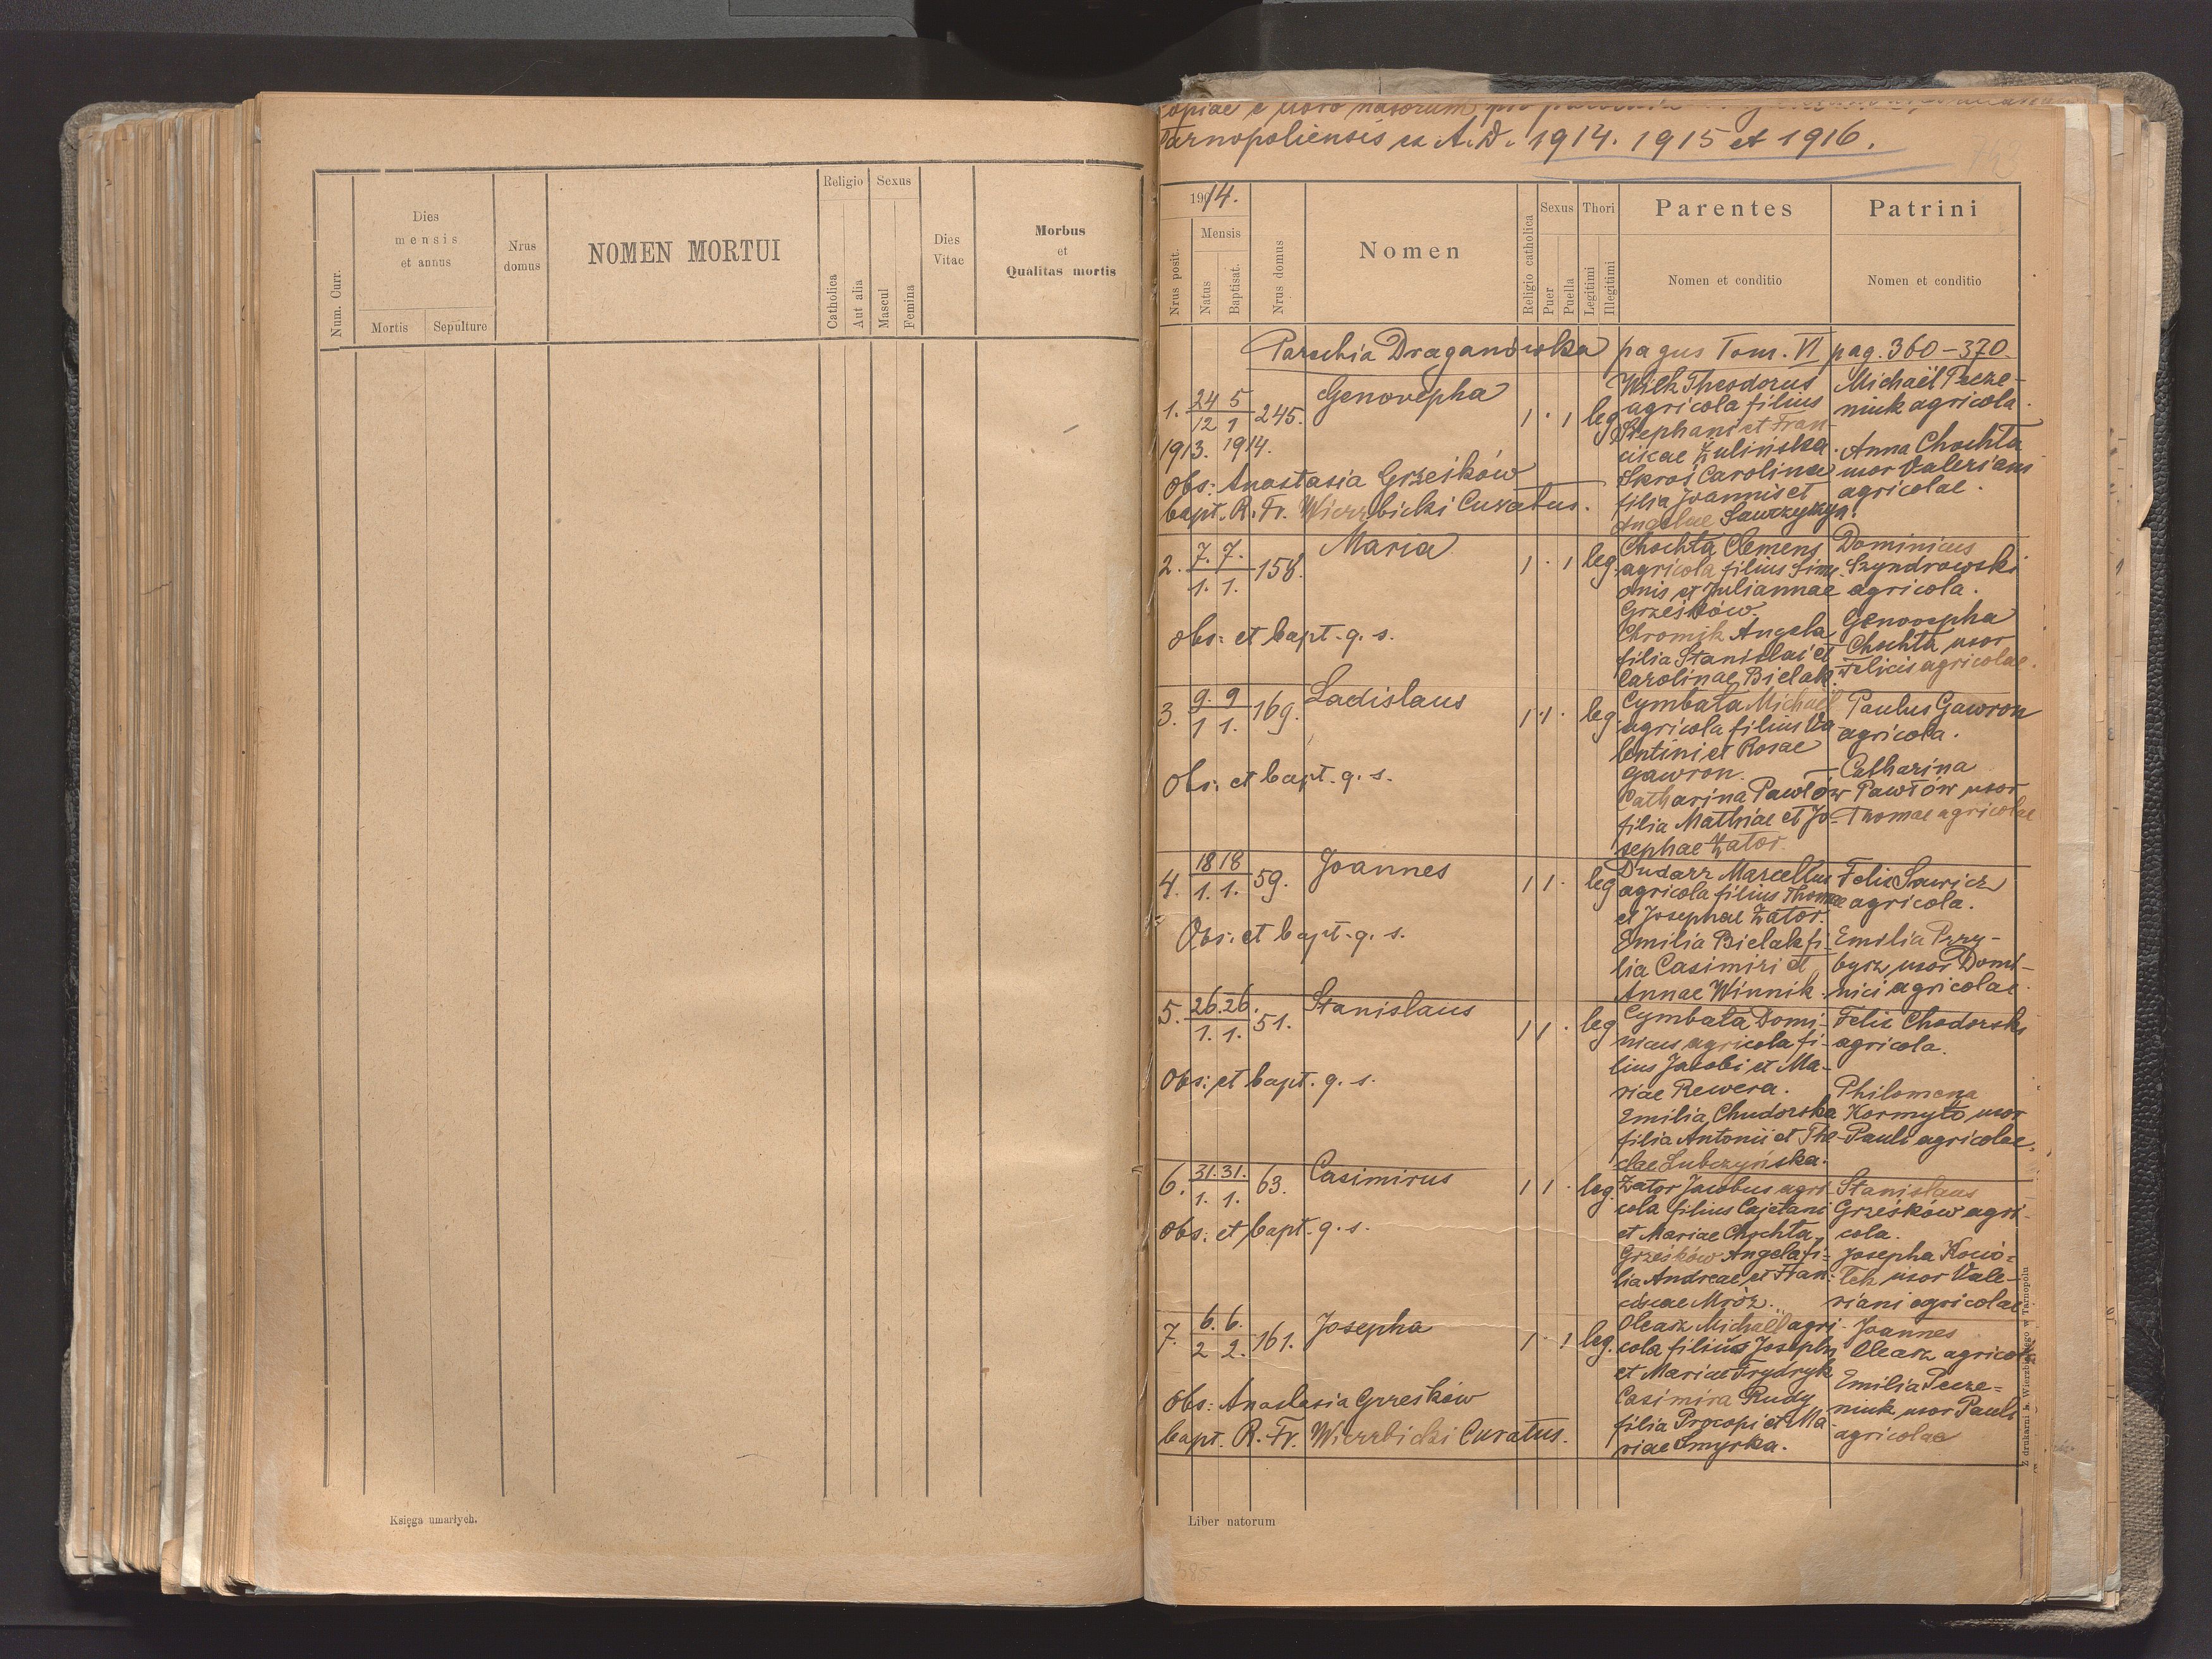 Num. Curr.
Dies
mensis
et annus
Mortis
Sepulture
Nrus
domus
NOMEN MORTUI
Religio
Catholica
Aut alia
Sexus
Mascul
Femina
Dies
Vitae
Morbus
et
Qualitas mortis
Księga umarłych.
copiae e libro natorum pro
Tarnopoliensis ex A. D. 1914. 1915 et 1916.
1914.
Nrus posit.
Mensis
Natus
Baptisat.
Nrus domus
Nomen
Religio catholica
Sexus
Puer
Puella
Thori
Legitimi
Illegitimi
Parentes
Nomen et conditio
Patrini
Nomen et conditio
Parochia Draganówka pagus Tom. VI pag. 360-370.
1. 24 5 245. Genovepha 1 . 1 leg
12 1
1913. 1914.
Obs: Anastasia Grześków
bapt. R. Fr. Wierzbicki Curatus.
Wilk Theodorus
agricola filius
Stephani et Fran-
ciscae Żulińska.
Skroś Carolina
filia Joannis et
Angelae Sawczyszyn.
Michaël Pecze-
niuk agricola.
Anna Chochta
uxor Valeriani
agricolae.
2. 7. 7. 158. Maria 1 . 1 leg.
1. 1.
Obs: et bapt. q. s.
Chochta Clemens
agricola filius Sim-
onis et Juliannae
Grześków.
Chromik Angela
filia Stanislai et
Carolinae Bielak.
Dominicus
Szyndrowski
agricola.
Genovepha
Chochta uxor
Felicis agricolae.
3. 9. 9 169. Ladislaus 1 . 1 . leg.
1 1.
Obs: et bapt. q. s.
Cymbała Michaël
agricola filius Va-
lentini et Rosae
Gawron.
Catharina Pawłów
filia Mathiae et Jo-
sephae Zator.
Paulus Gawron
agricola.
Catharina
Pawłów uxor
Thomae agricolae
4. 18 18 59. Joannes 1 1 . leg
1. 1.
Obs: et bapt. q. s.
Dudarz Marcellus
agricola filius Thomae
et Josephae Zator.
Emilia Bielak fi-
lia Casimiri et
Annae Winnik.
Felix Sawicz
agricola.
Emilia Przy-
bysz uxor Domi-
nici agricolae.
5. 26. 26. 51. Stanislaus 1 1 . leg
1. 1.
Obs: et bapt. q. s.
Cymbała Domi-
nicus agricola fi-
lius Jacobi et Ma-
riae Rewera.
Emilia Chudorska
filia Antonii et The-
clae Lubczyńska.
Felix Chodorski
agricola.
Philomena
Kormyło uxor
Pauli agricolae.
6. 31. 31. 63. Casimirus 1 1 . leg.
1. 1.
Obs: et bapt. q. s.
Zator Jacobus agri-
cola filius Cajetani
et Mariae Chochta.
Grześków Angela fi-
lia Andreae et Fran-
ciscae Mróz.
Stanislaus
Grześków agri-
cola.
Josepha Kocio-
łek uxor Vale-
riani agricolae
7. 6. 6. 161. Josepha 1 . 1 leg.
2 2.
Obs: Anastasia Grześków
bapt. R. Fr. Wierzbicki Curatus.
Oleasz Michaël agri-
cola filius Josephi
et Mariae Frydryk
Casimira Rudy
filia Procopi et Ma-
riae Smyrka.
Joannes
Oleasz agricola
Emilia Pecze-
niuk uxor Pauli
agricolae
Z drukarni L. Wierzbickiego w Tarnopolu
Liber natorum
385.